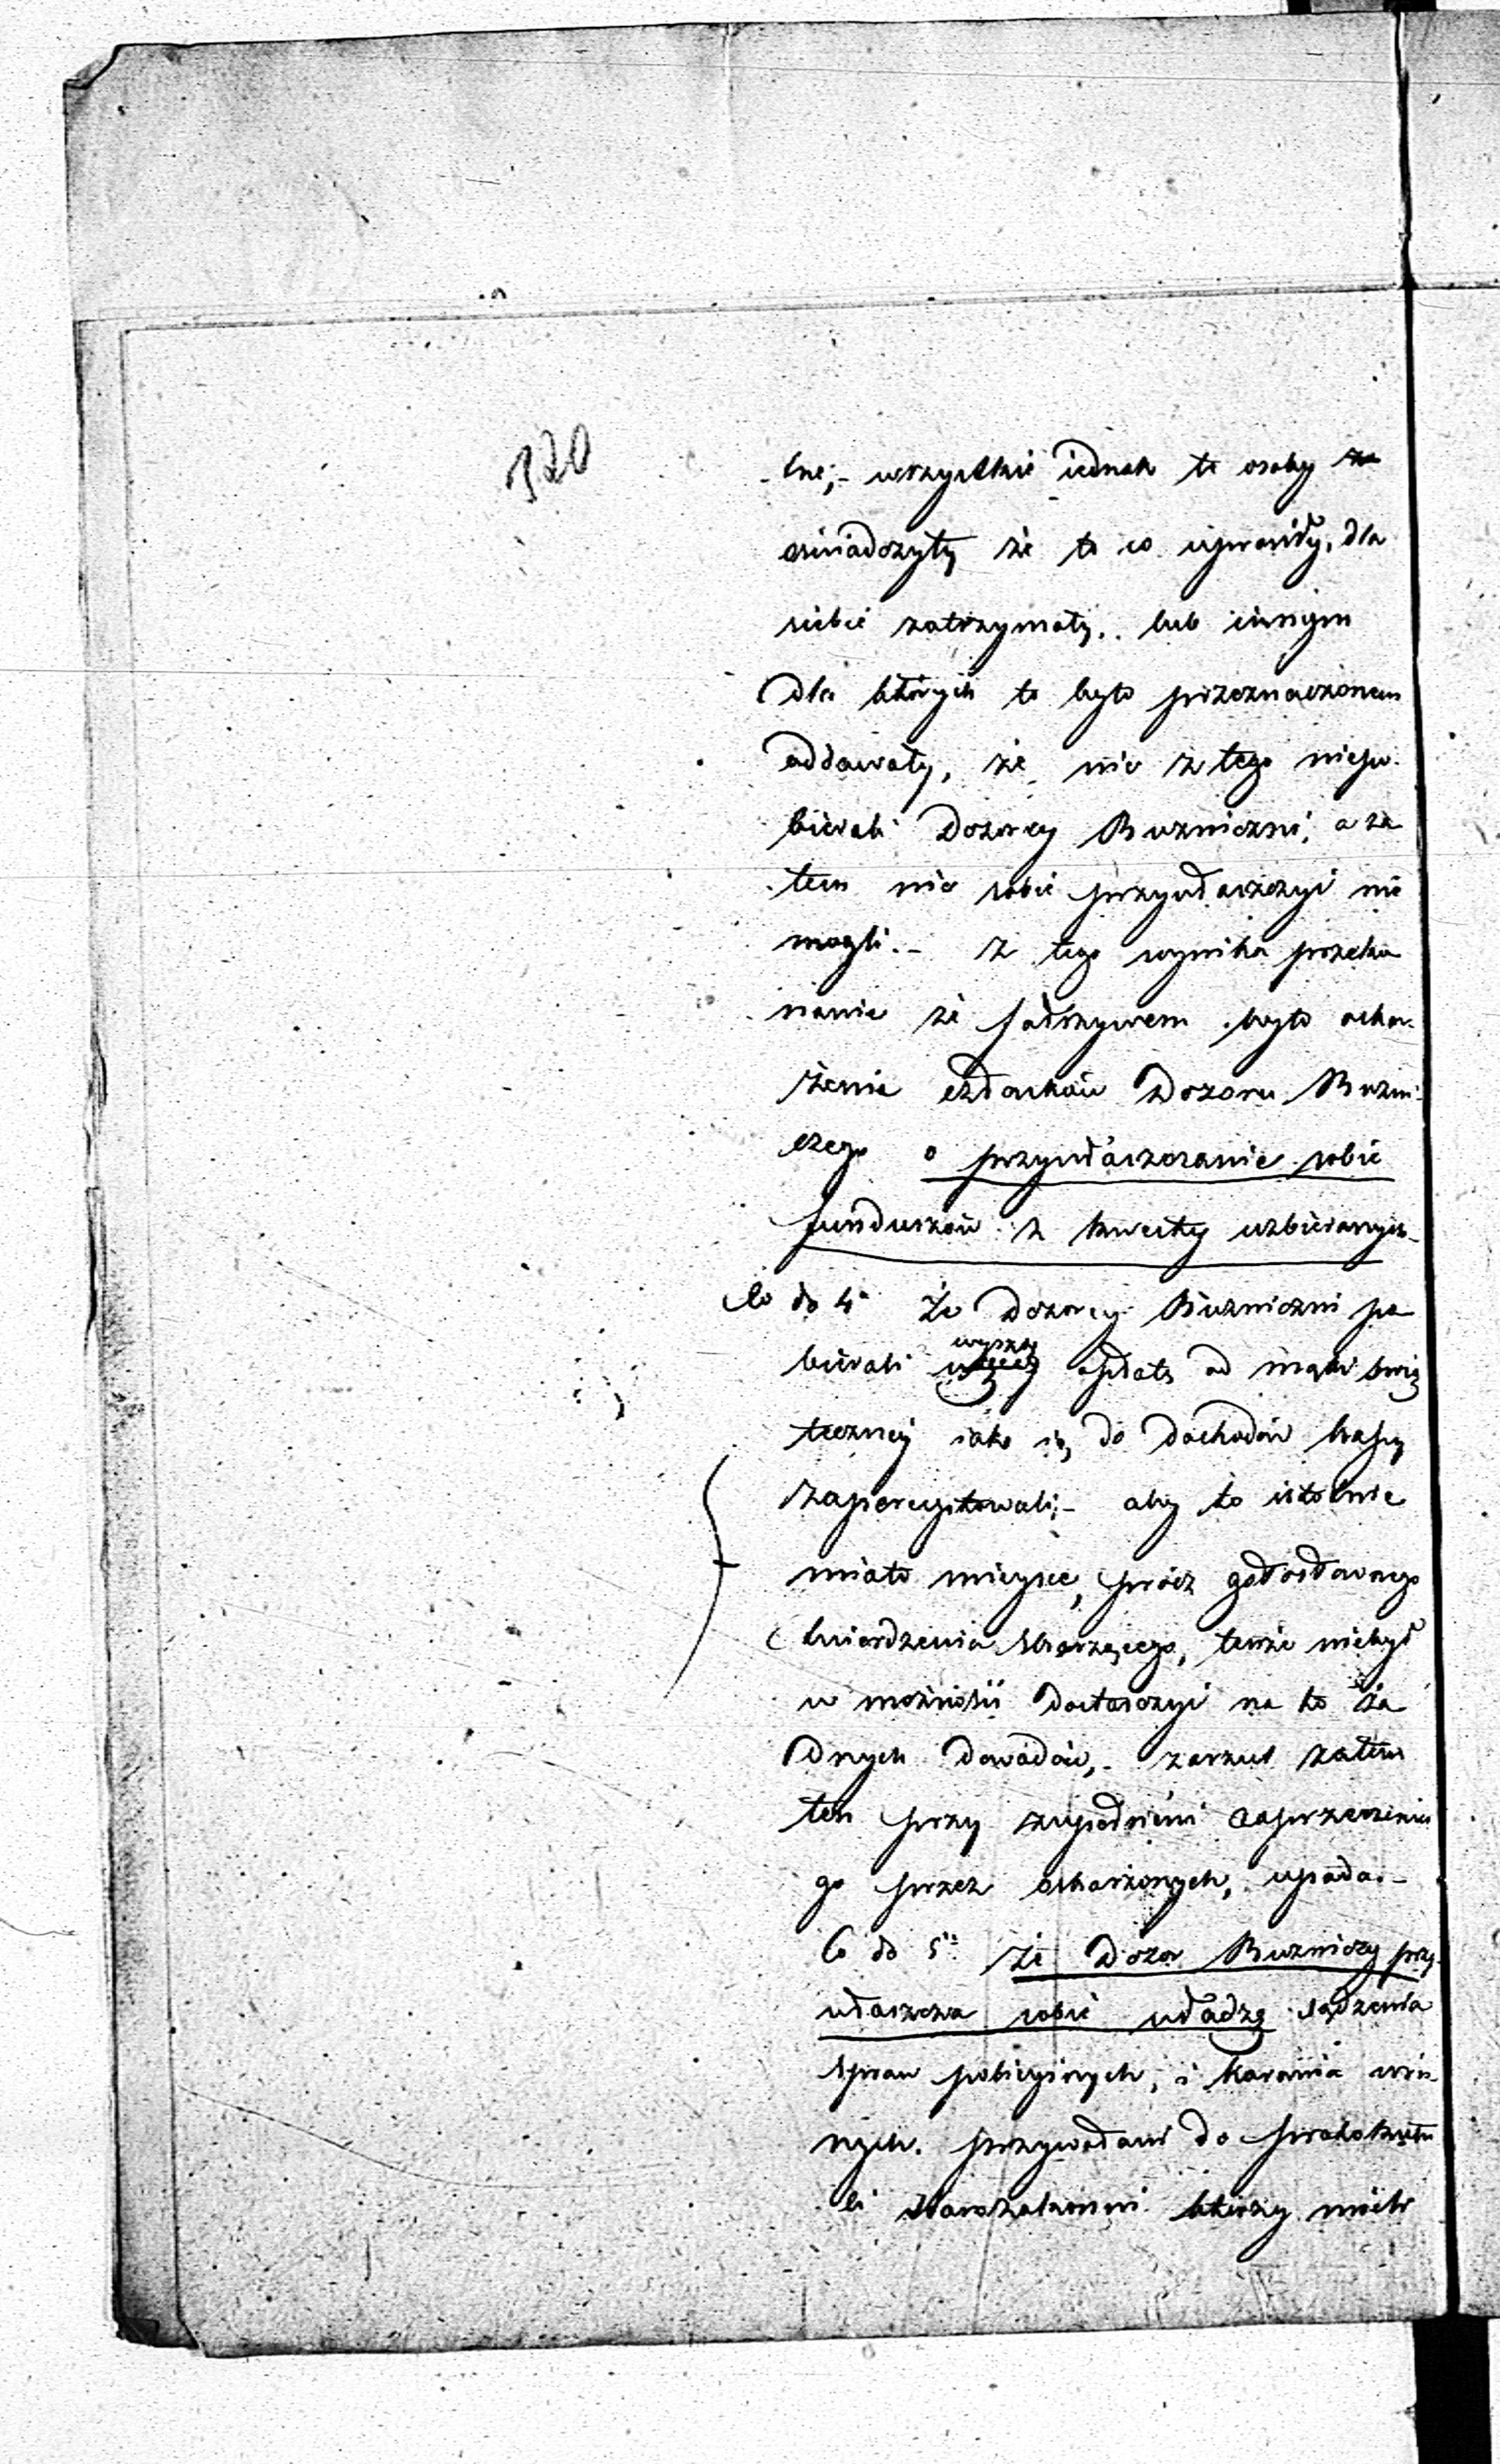 320
-lne;- wszystkie iednak te osoby
oswiadczyły że to co uprosiły, dla
siebie zatrzymały.. lub innym
dla których to było przeznaczonem
oddawały, że nic z tego niepo-
bierali Dozorcy Bużniczni, a za
tem nic sobie przywłaszczyć nie
mogli.- Z tego wynika przeko
nanie że fałszywem było oskar-
żenie członków Dozoru Bużni-
czego o przywłaszczanie sobie
funduszów z kwesty uzbieranych-
Co do 4° Że Dozorcy Bużniczni po
bierali wyższą opłatę od mąki świą
teczney iako ią do dochodów kassy
zapercypowali;- aby to istotnie
miało mieysce, prócz gołosłownego
twierdzenia skarżącego, tenże niebył
w możności dostarczyć na to ża
dnych dowodów,- zarzut zatem
ten przy zupełnem zaprzeczeniu
go przez oskarżonych, upada.-
Co do 5° że Dozor Bużniczy przy-
właszcza sobie władzę sądzenia
spraw policyinych, i karania win-
nych. przywodem do protokułu
li Starozakonni którzy mieli